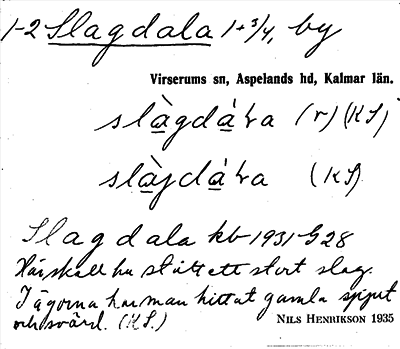 1-2 Slagdala 1+3/4, by
Virserums sn, Aspelands hd, Kalmar län.
slàgdáɫa (r) (KS)
slàgdáɫa (KS)
Slagdala kb 1931 G28
Här skall ha stått ett stort slag.
I ägorna har man hittat gamla spjut
och svärd. (KS.)
NILS HENRIKSON 1935